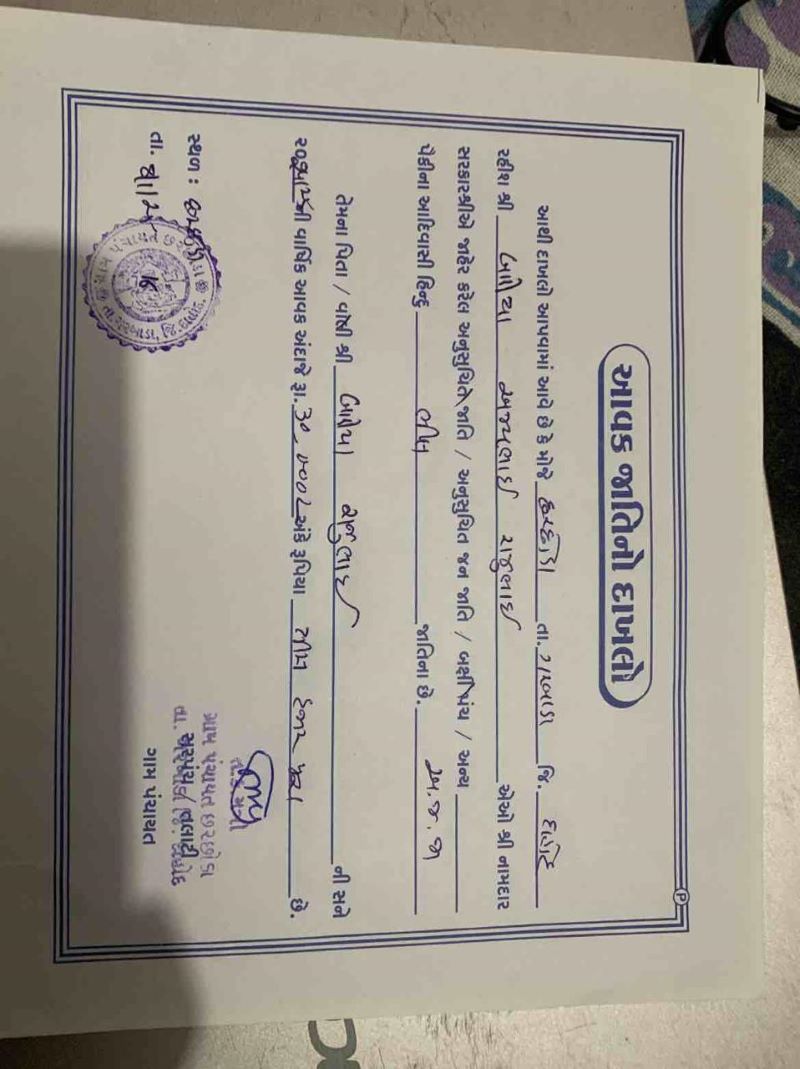 આવક જાતિનો દાખલો
આથી દાખલો આપવામાં આવે છે કે મોજે છરછોડા તા. ગરબાડા જિ. દાહોદ
રહીશ શ્રી અજયભાઈ રાજુભાઈ એઓ શ્રી નામદાર
સરકારશ્રીએ જાહેર કરેલ અનુસુચિત જાતિ / અનુસુચિત જન જાતિ / બક્ષીપંચ / અન્ય
પૈકીના આદિવાસી હિન્દુ ભીલ જાતિના છે. અ.જ.જા
તેમના પિતા / વાલી શ્રી રાજુભાઈ ની સને
ની વાર્ષિક આવક અંદાજે રૂા. અંકે રૂપિયા હજાર પુરા છે.
સ્થળ : છરછોડા
તા.
ગ્રામ પંચાયત છરછોડા
તા. ગરબાડા જિ. દાહોદ
સરપંચ/તલાટી
ગ્રામ પંચાયત
P